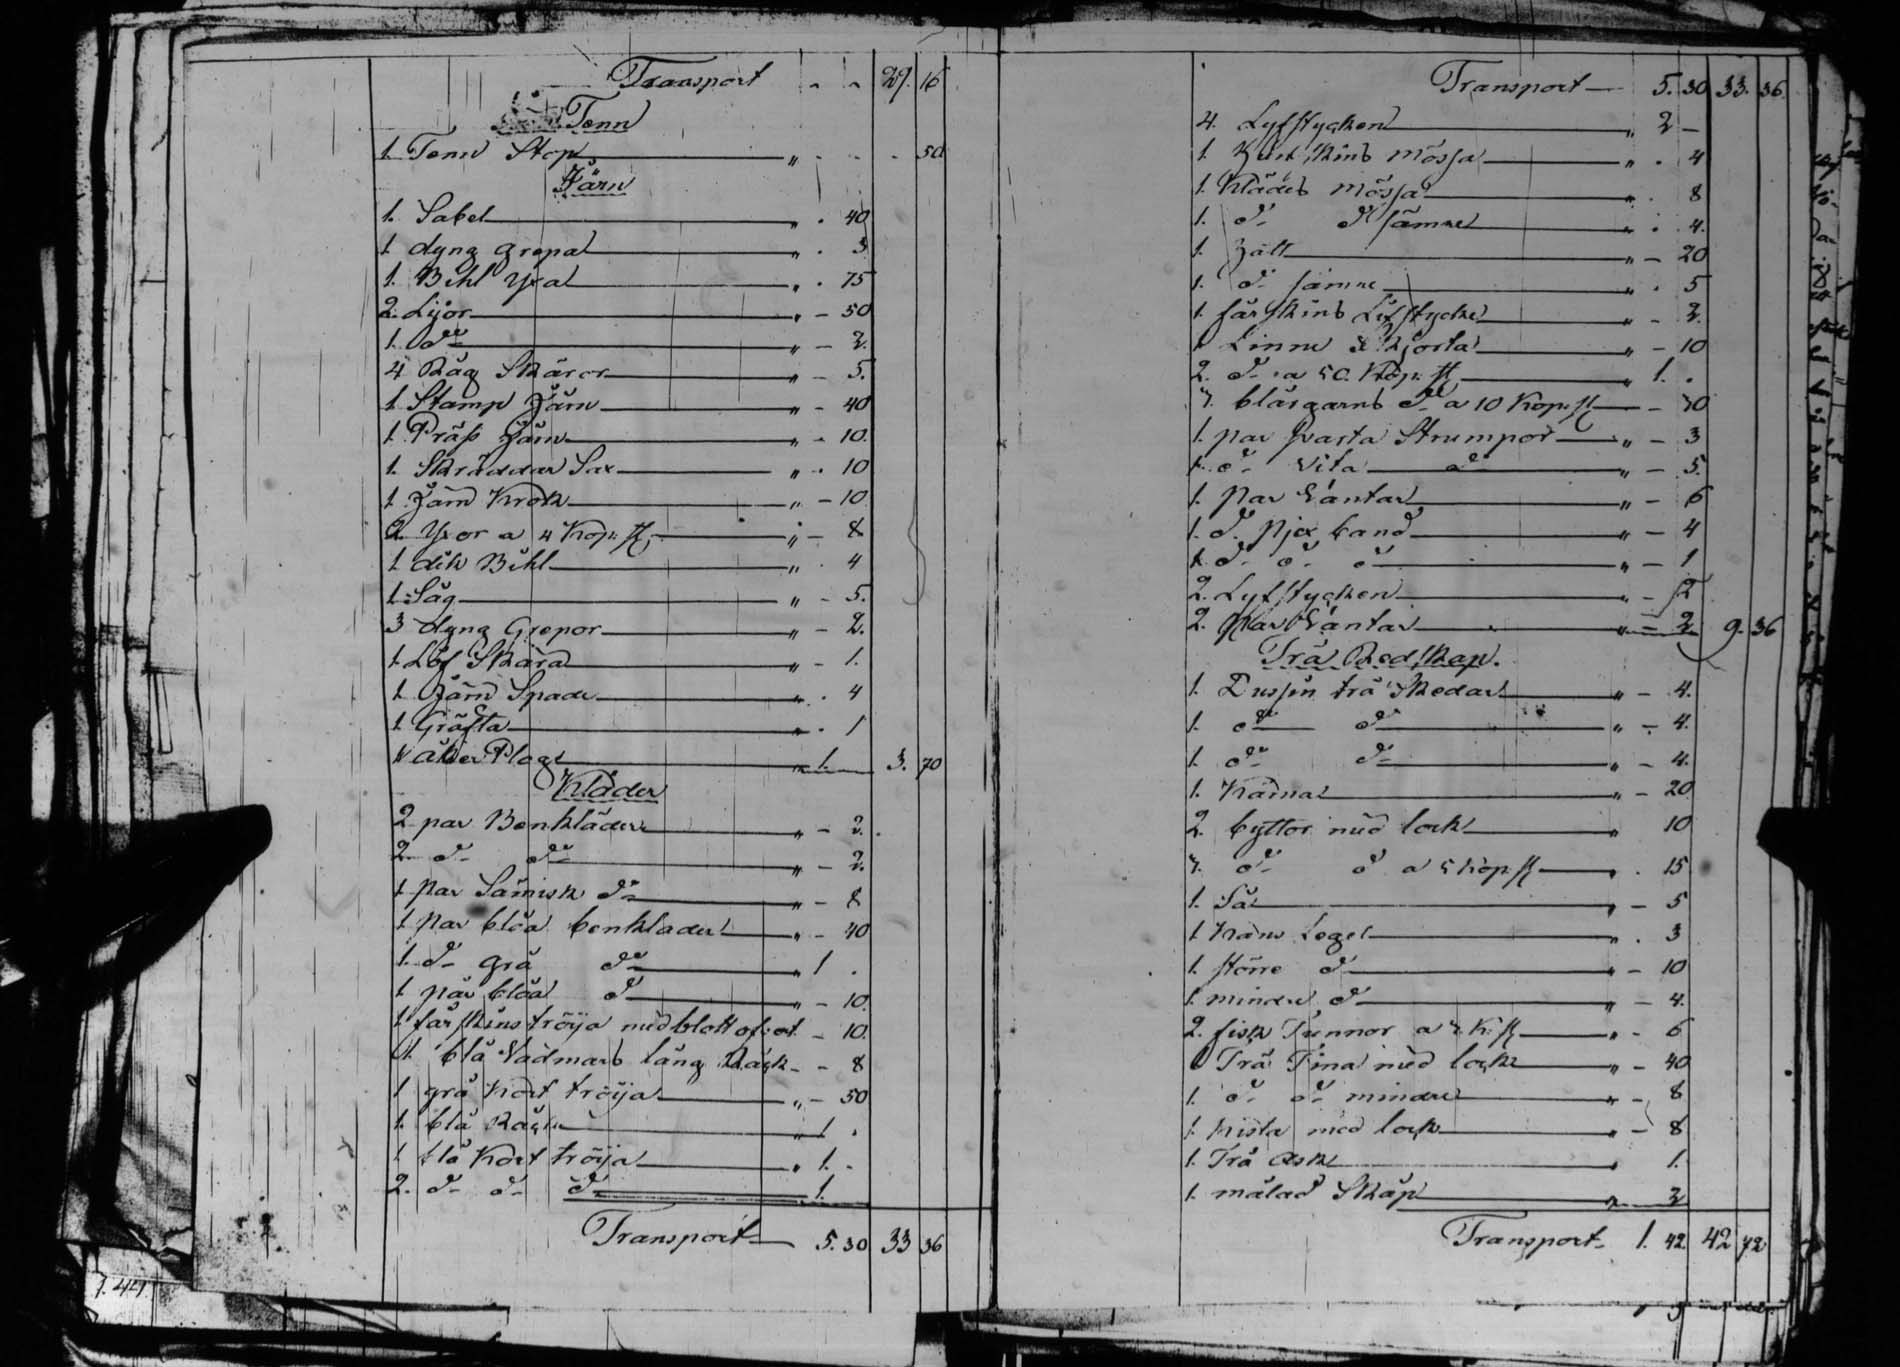 Transport - - 29. 16
Tenn
1. Tenn Stop " - - - 50
Järn
1. Sabel " . 40
1 dyng grepa " . 3
1. Bihl Yxa " . 75
2. Lijor " - 50
1. do " - 2.
4 Råg Skäror " - 5.
1 Stamp Järn " - 40
1. Präss Järn " - 10.
1. Skräddar Sax " . 10
1. Järn Krok " - 10.
2. Yxor a 4 Kop. st " - 8
1 dik Bihl " . 4
1. Såg " - 5.
3 dyng Grepor " - 2.
1. Löf Skära " - 1.
1. Järn Spade " . 4
1 Gräfta " . 1
1 åker Plog " 1. 3. 70
Kläder
2 par Benkläder " - 2.
2 d- do " - 2.
1 par Sämisk do " - 8
1 par blåa benklader " - 40
1. d- grå do " 1 .
1 par blåa d- " - 10.
1 fårskins tröija med blått - 10.
1. blå Vadmars lång Råck - - 8
1 grå Kort tröija " - 50
1. blå Råck " 1 .
1 blå Kort tröija " 1. -
2. d- d- d- 1.
Transport 5. 30 33 36
Transport 5. 30 33. 36.
4. Lyfstycken " 2 -
1. skins mössa " . 4
1. Klädes mössa " . 8
1. d- d- sämre " . 4.
1. " - 20
1. d- sämre " . 5
1. fårskins Lifstycke " - 2.
1 Linne Skjorta " - 10
2. d- a 50. Kop. st " 1. .
blårgarns do a 10 Kop. st - 30
1. par svarta Strumpor " - 3
1. d- vita d- " - 5.
1. par Vantar " - 6
1. d. band " - 4
1. d- d- d- " - 1
2. Lyfstycken " - 2
2. par Vantar " - 2 9. 36
Trä Redskap.
1. Dussin trä Skedar " - 4.
1. do d- " - 4.
1. do d- " - 4.
1. Kärna " - 20
2. byttor med lock " 10
3. d- d- a 5 Kop st . 15
1. Så " - 5
1 Legel " . 3
1. större d- " - 10
1. mindre d- " - 4.
2. fisk Tunnor a 3 K. st " - 6
1 Trä Tina med lock " - 40
1. d- d- mindre " - 8
1. Kista med lock " - 8
1. Trä Ask " 1.
1. målad Skåp " 2
Transport 1. 42 42 72